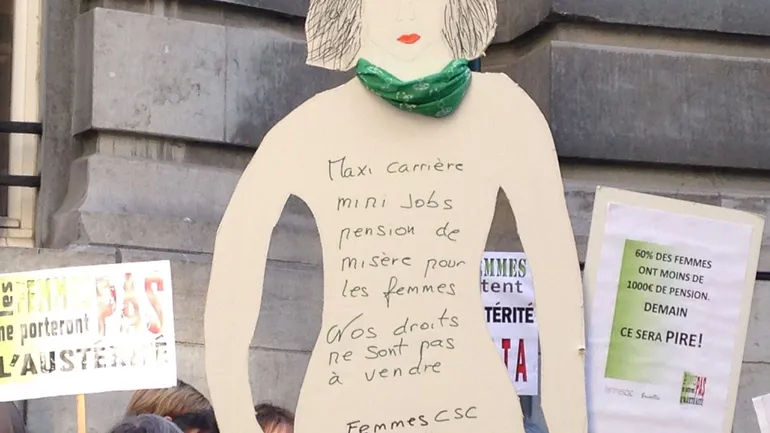 les FEMMES PAS
ne porteront
L'AUSTÉRITÉ
Maxi carrière
mini Jobs
pension de
misère pour
les femmes
Nos droits
ne sont pas
à vendre
Femmes CSC
MMES
tent
TÉRITÉ
TA
60% DES FEMMES
ONT MOINS DE
1000€ DE PENSION.
DEMAIN
CE SERA PIRE!
PAS